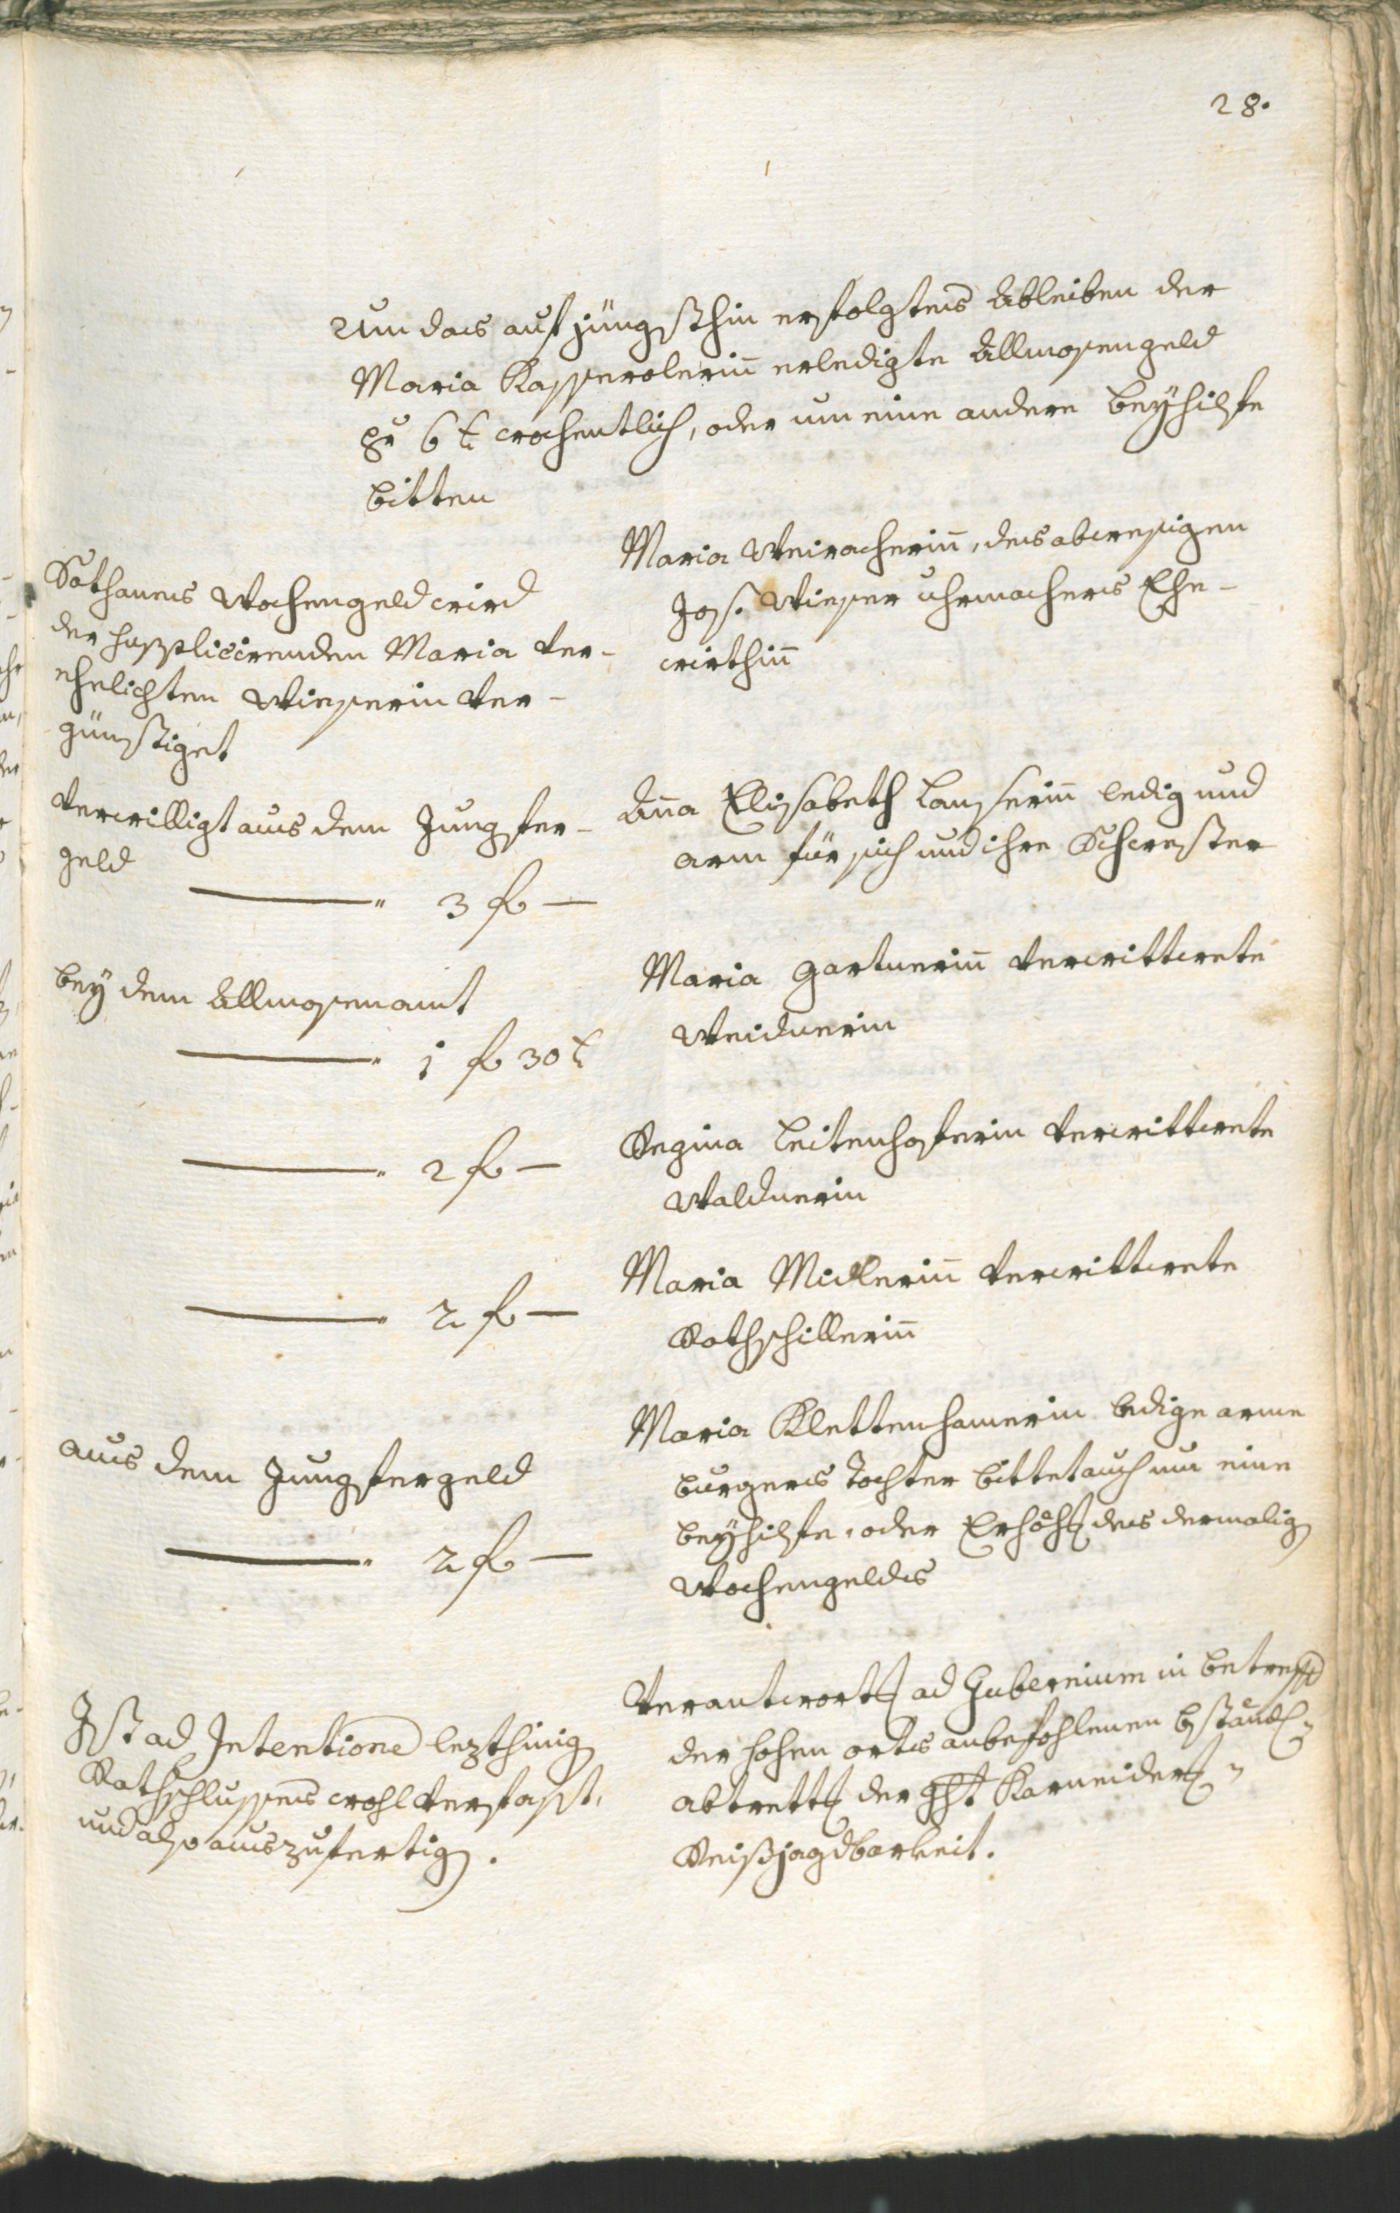 28.
Um das auf jüngsthin erfolgtes Ableiben der
Maria Kasserolerin̄ erledigte Allmosengeld
pr 6 x wochentlich, oder um eine andere beyhilfe
bitten
Maria Weiracherin̄, des abwesigen
Jos. Wieser Uhrmachers Ehe-
wirthin̄
Sothanes Wochengeld wird
der supplicirenden Maria ver-
ehelichten Wieserin ver-
günstiget
Añna Elisabeth Lanserin̄ ledig und
arm für sich und ihre Schwester
verwilligt aus dem Jungfer-
geld
3 fl —
Maria Gartnerin̄ verwittwete
Weidnerin
bey dem Allmosenamt
1 fl 30 x
Regina Leitenhoferin verwittwete
Waldnerin
2 fl —
Maria Midlerin̄ verwittwete
Rothschillerin̄
2 fl —
Maria Klettenhamerin ledige arme
burgers Tochter bittet auch um eine
beyhilfe, oder Erhöhg des dermalig
Wochengeldes
aus dem Jungfergeld
2 fl —
Verantwortg ad Gubernium in betreff
der hohen orts anbefohlenen bständ
abtrettg der Karneider
Reißjagdbarkeit.
Ist ad Intentione lezthinig
Rathschlusses wohl verfasst,
und also auszufertig.